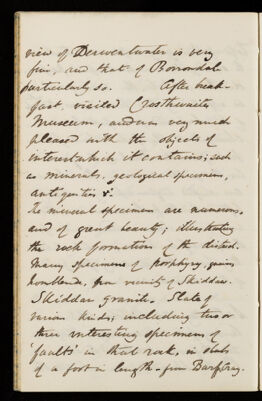 view of Derwentwater is very
fine, and that of Borrowdale
particularly so. After break-
fast, visited Crosthwaite's
Museum, and was very much
pleased with the objects of
interest which it contains; such
as minerals, geological specimens,
antiquities &c.
The mineral specimens are numerous,
and of great beauty; illustrating
the rock formation of the district.
Many specimens of porphyry, gneiss
hornblende, from vicinity of Skiddaw.
Skiddaw granite. Slate of
various kinds; including two or
three interesting specimens of
'faults' in that rock, in slabs
of a foot in length - from